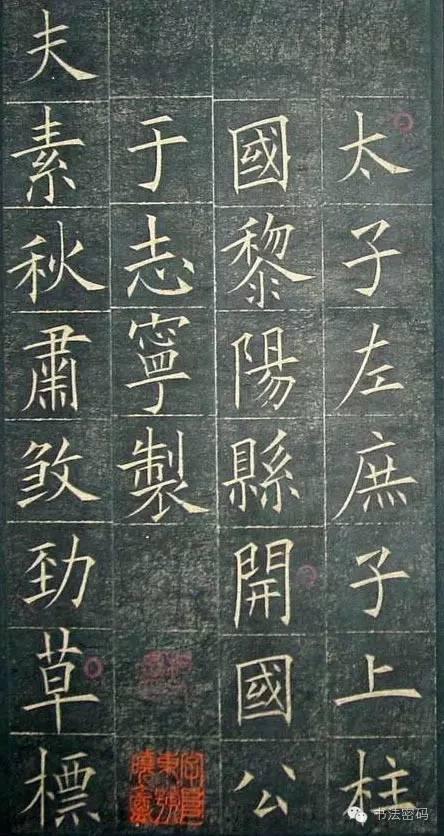 太子左庶子上柱
國黎陽縣開國公
于志寧製
夫素秋肅煞勁草標
书法密码